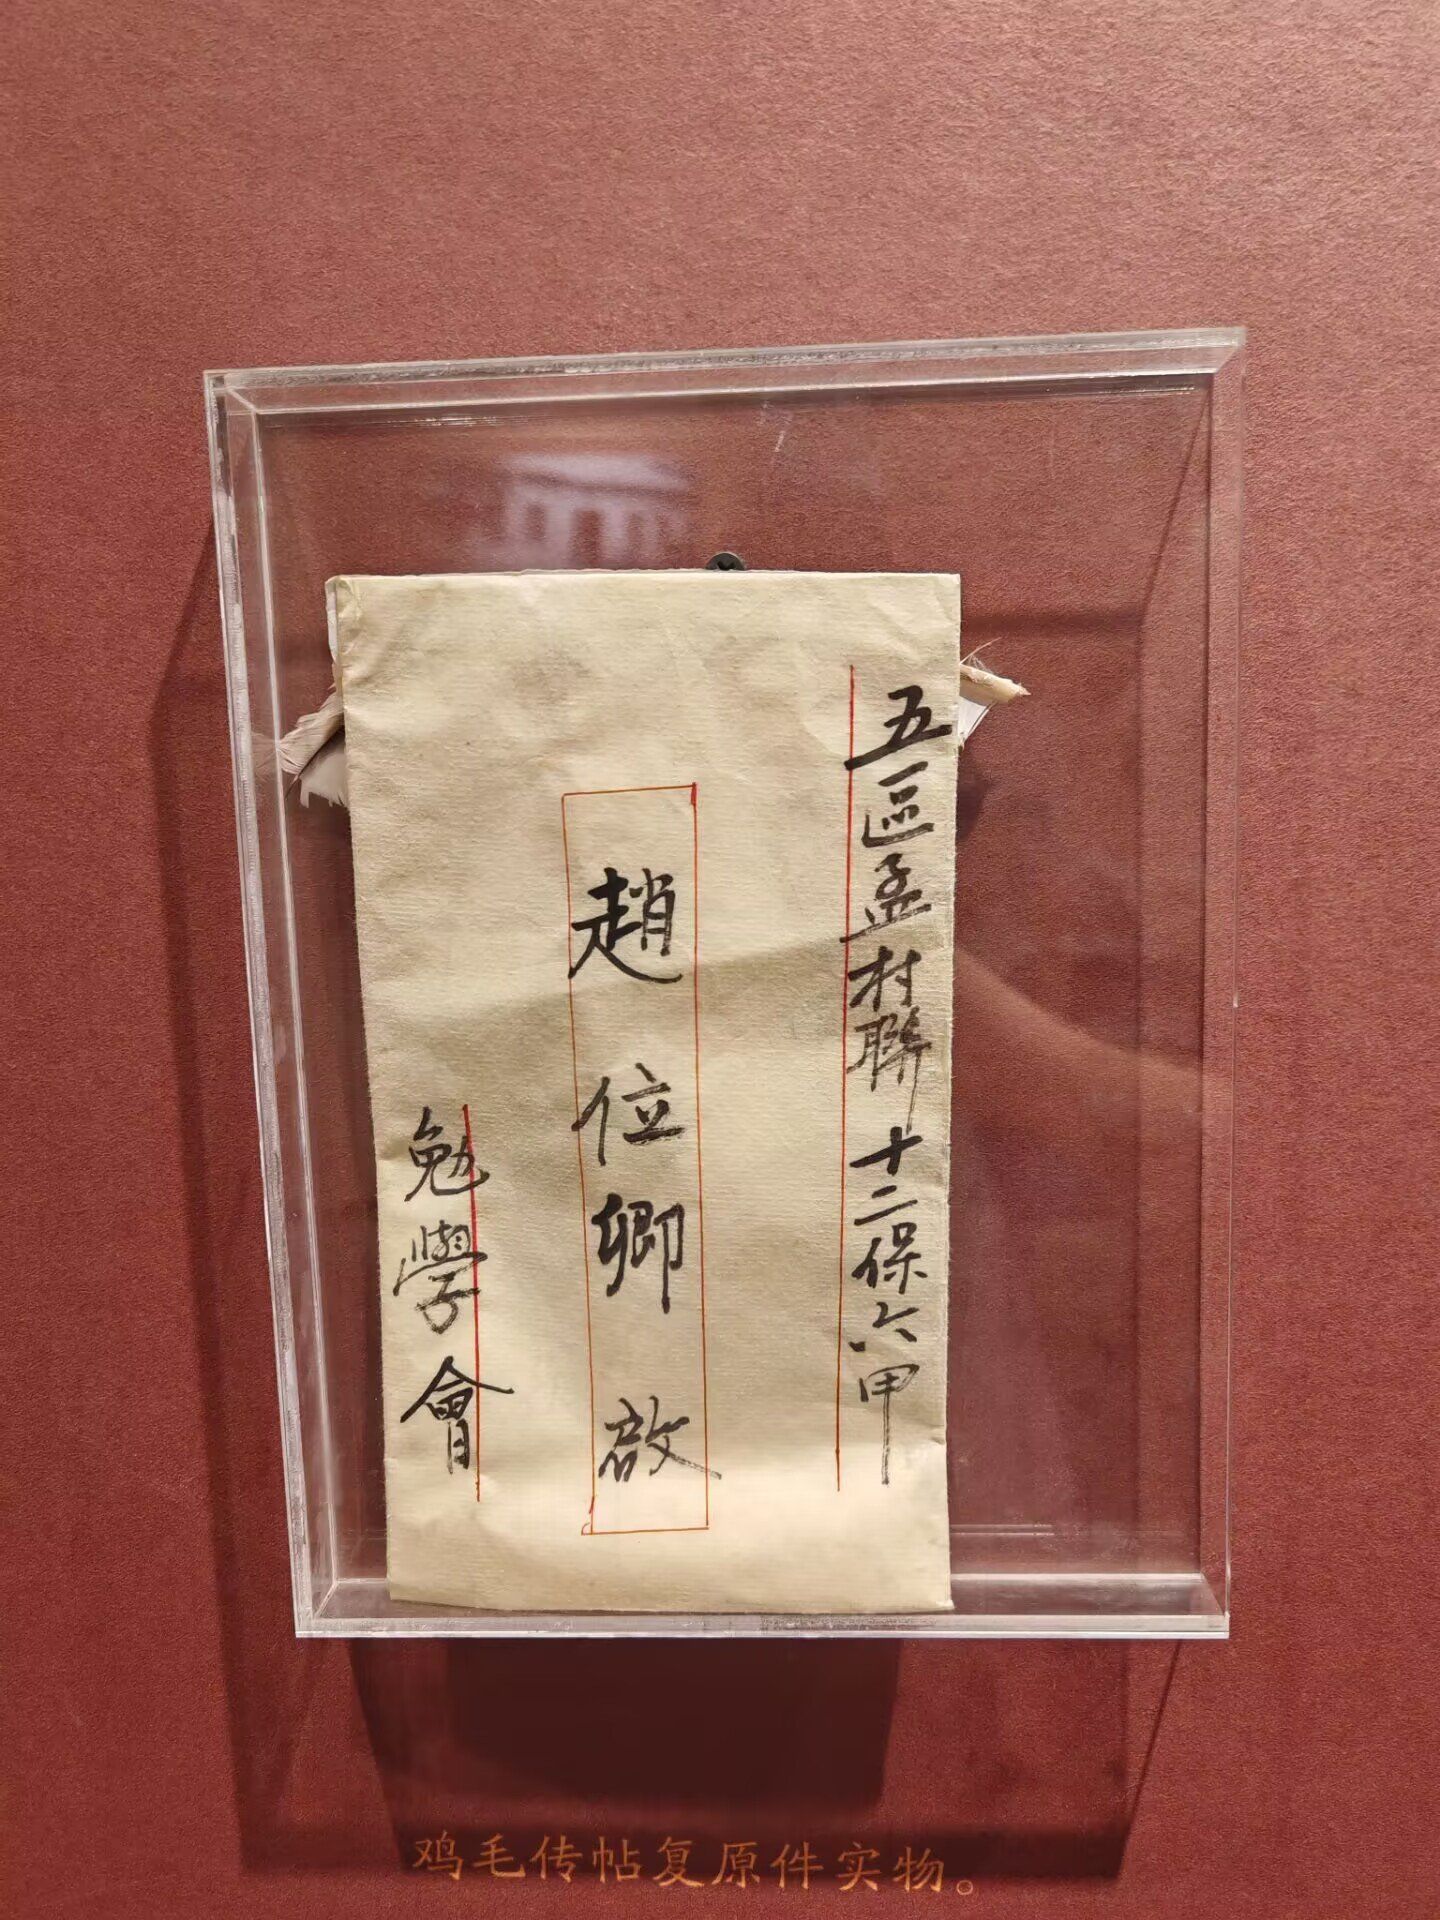 五區孟村聯十二保六甲
趙位卿啟
勉學會
鸡毛传帖复原件实物。